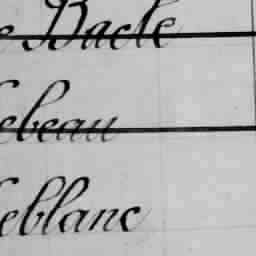 e Bacle
Lebeau
Leblanc